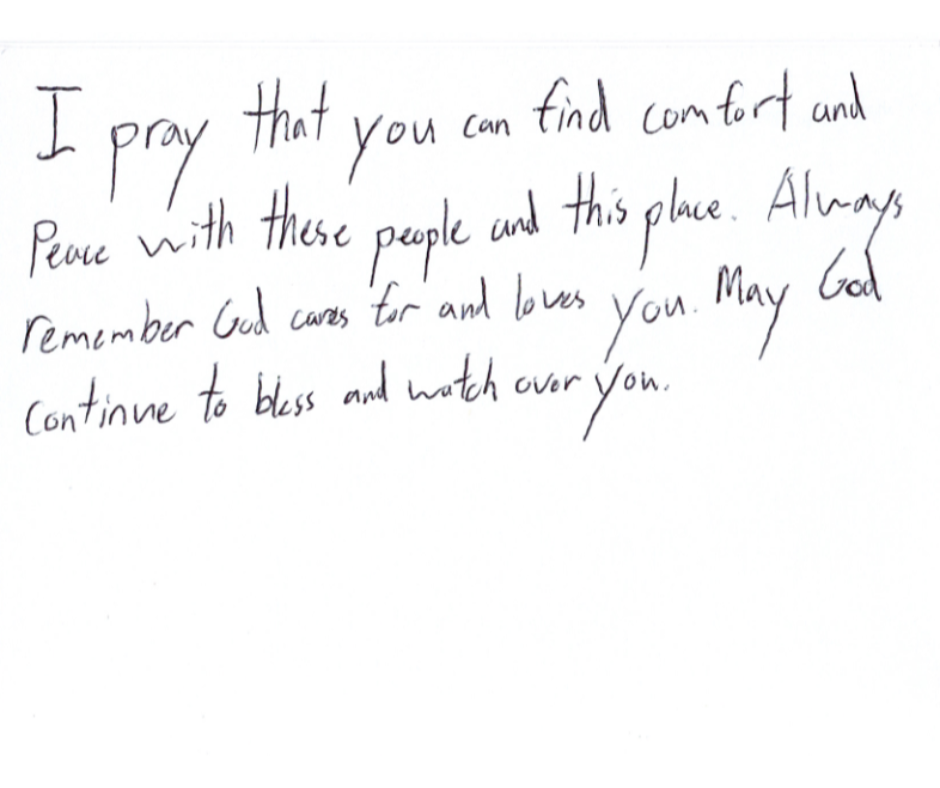 I pray that you can find comfort and
Peace with these people and this place. Always
remember God cares for and loves you. May God
Continue to bless and watch over you.